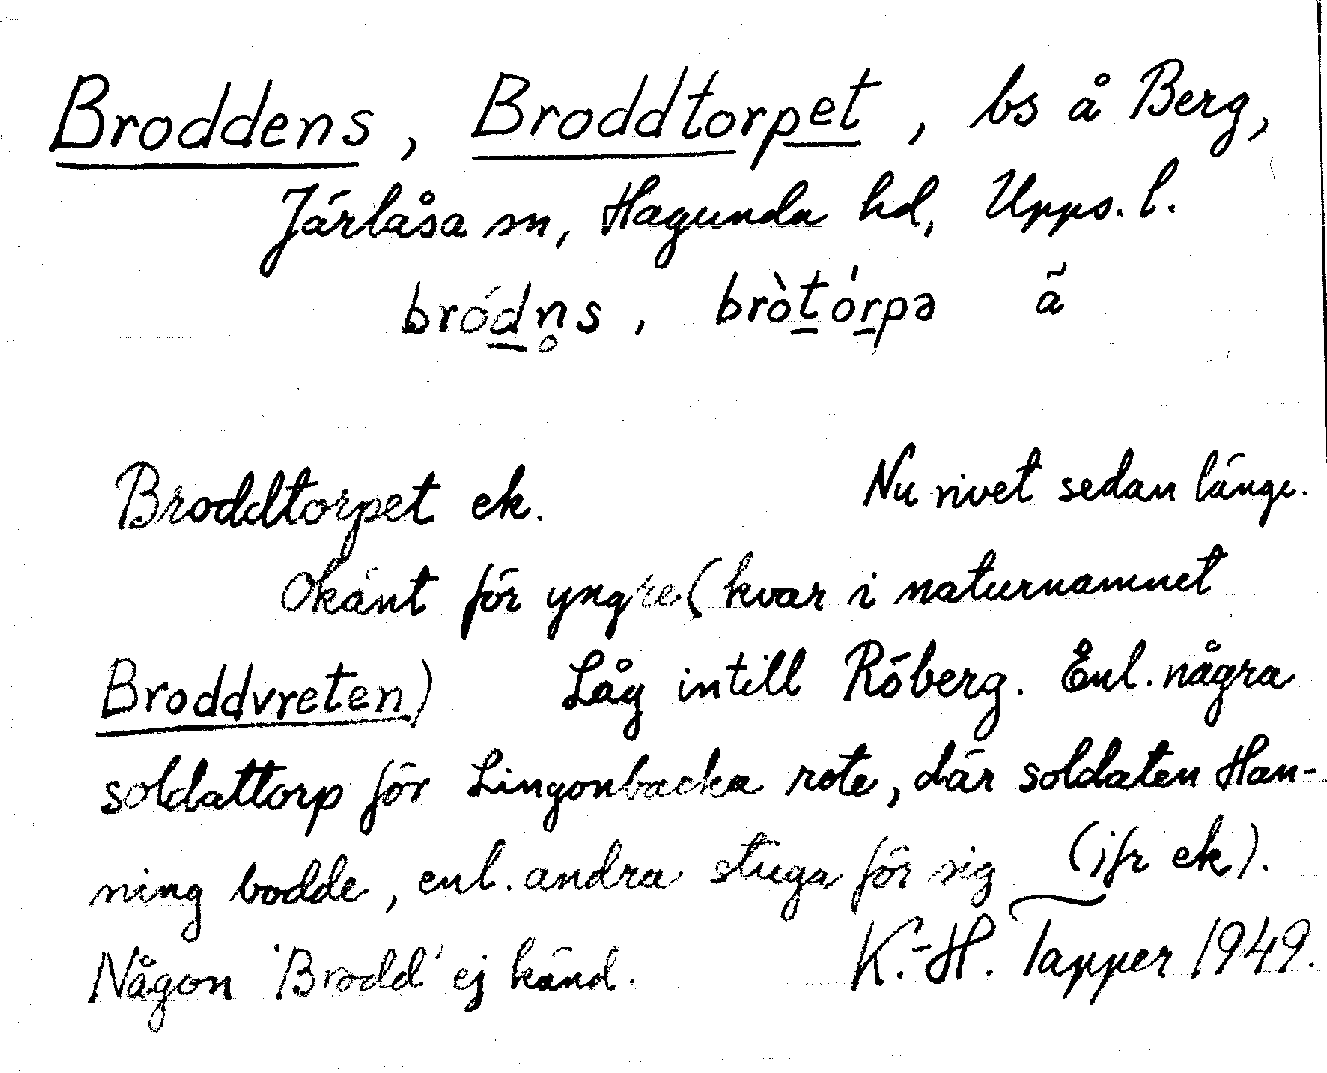 Broddens, Broddtorpet, bs å Berg,
Järlåsa sn, Hagunda hd, Upps. l.
bródn̥s, bròtórpə ã
Broddtorpet ek. Nu rivet sedan länge.
Okänt för yngre (kvar i naturnamnet
Broddvreten) Låg intill Röberg. Enl. några
soldattorp för Lingonbacka rote, där soldaten Han-
ning bodde, enl. andra stuga för sig (jfr ek).
Någon 'Brodd' ej känd. K.-H. Tapper 1949.